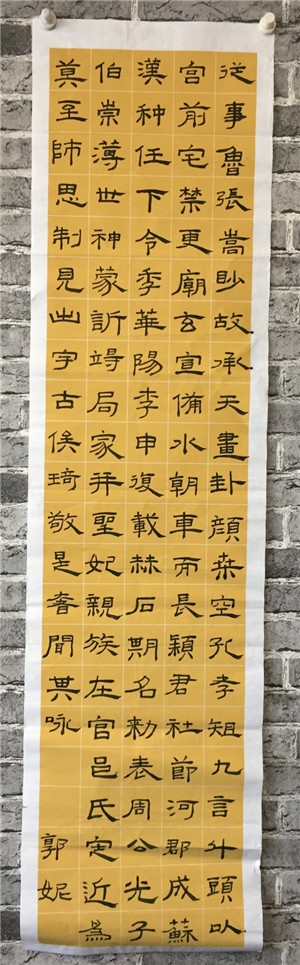 従事魯張嵩眇故承天畫卦顏桒空孔孝俎九言斗頭以
宮前宅禁更廟玄宣備水朝車而長潁君社節河郡成蘇
漢种任下令季華陽李申復載赫石期名勑表周公光子
伯崇薄世神蒙訢竫局家并聖妃親族在官邑氏定近爲
莫至師思制見出字古侯琦敬是耆聞其咏
郭妮